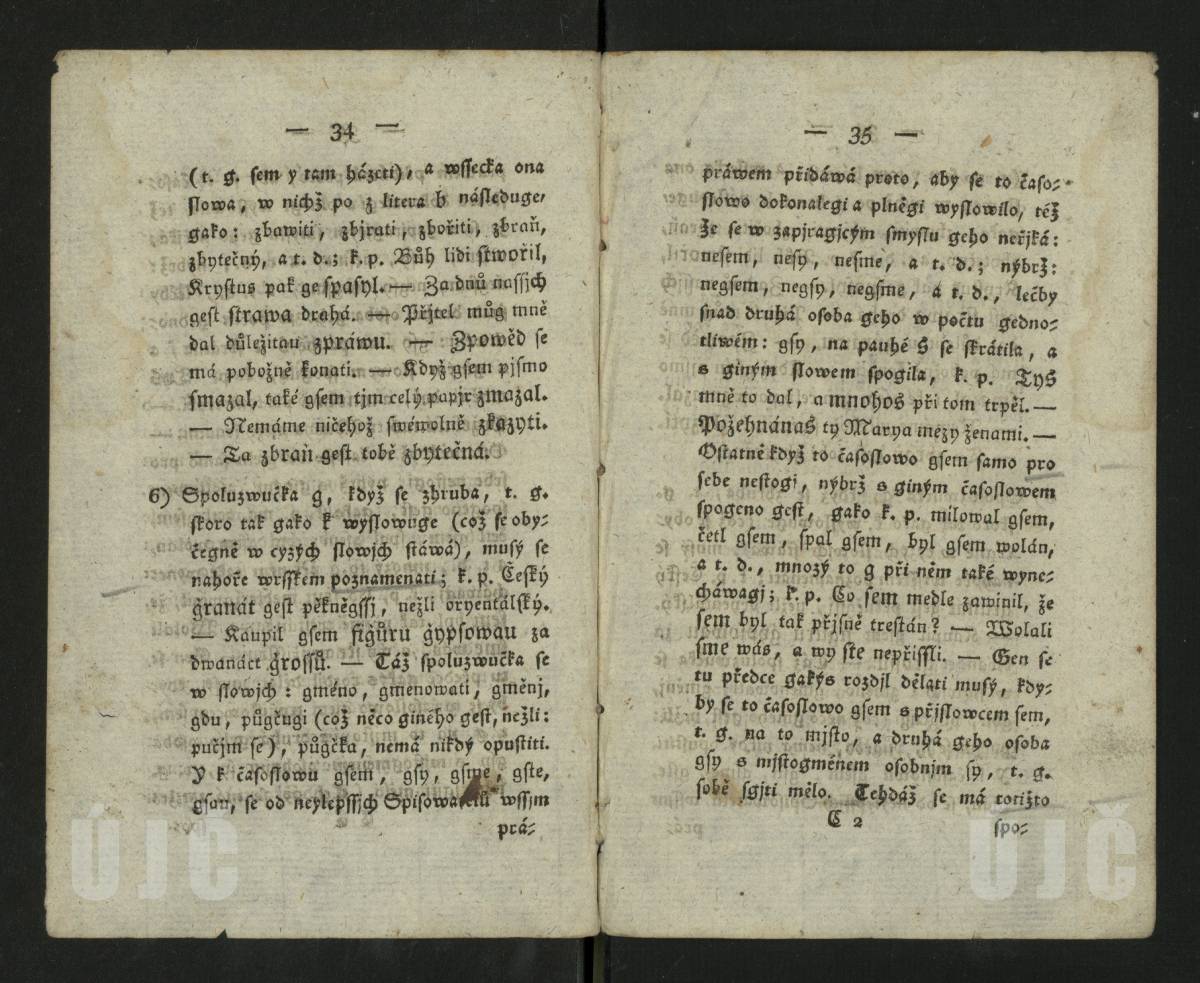 — 34 —
(t. g. sem y tam házeti), a wssecka ona
slowa, w nichž po z litera b následuge,
gako: zbawiti, zbjrati, zbořiti, zbraň,
zbytečný, a t. d.; k. p. Bůh lidi stwořil,
Krystus pak ge spasyl. — Za dnů nassjch
gest strawa drahá. — Přjtel můg mně
dal důležitau zpráwu. — Zpowěd se
má pobožně konati. — Když gsem pjsmo
smazal, také gsem tjm celý papjr zmazal.
— Nemáme ničehož swéwolně zkazyti.
— Ta zbraň gest tobě zbytečná.
6) Spoluzwučka g, když se zhruba, t. g.
skoro tak gako k wyslowuge (což se oby⸗
čegně w cyzých slowjch stáwá), musý se
nahoře wrsskem poznamenati; k. p. Český
ǧranát gest pěkněgssj, nežli oryentálský.
— Kaupil gsem fiǧůru ǧypsowau za
dwanáct ǧrossů. — Táž spoluzwučka se
w slowjch: gméno, gmenowati, gměnj,
gdu, půgčugi (což něco giného gest, nežli:
pučjm se), půgčka, nemá nikdý opustiti.
Y k časoslowu gsem, gsy, gsme, gste,
gsau, se od neylepssjch Spisowatelů wssjm
prá⸗
— 35 —
práwem přidáwá proto, aby se to časo⸗
slowo dokonalegi a plněgi wyslowilo, též
že se w zapjragjcým smyslu geho neřjká:
nesem, nesy, nesme, a t. d.; nýbrž:
negsem, negsy, negsme, a t. d., lečby
snad druhá osoba geho w počtu gedno⸗
tliwém: gsy, na pauhé S se skrátila, a
s giným slowem spogila, k. p. TyS
mně to dal, a mnohoS při tom trpěl. —
PožehnánaS ty Marya mezy ženami. —
Ostatně když to časoslowo gsem samo pro
sebe nestogj, nýbrž s giným časoslowem
spogeno gest, gako k. p. milowal gsem,
četl gsem, spal gsem, byl gsem wolán,
a t. d., mnozý to g při něm také wyne⸗
cháwagj; k. p. Co sem medle zawinil, že
sem byl tak přjsně trestán? — Wolali
sme wás, a wy ste nepřissli. — Gen se
tu předce gakýs rozdjl dělati musý, kdy⸗
by se to časoslowo gsem s přjslowcem sem,
t. g. na to mjsto, a druhá geho osoba
gsy s mjstogménem osobnjm sy, t. g.
sobě sgjti mělo. Tehdáž se má totižto
C 2
spo⸗
ÚJČ
ÚJČ